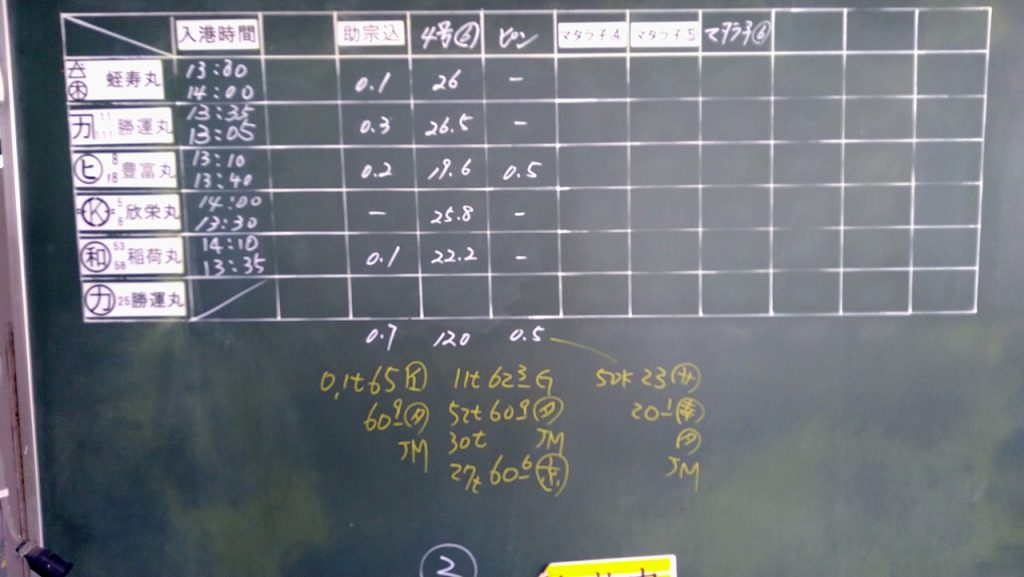 入港時間 助宗込 4号⑥ ピン マタラ子④ マタラ子⑤ マダラ子⑥
木 蛭寿丸 13:30 14:00 0.1 26 -
カ 11 111 勝運丸 13:35 13:05 0.3 26.5 -
ヒ 8 18 豊富丸 13:10 13:40 0.2 19.6 0.5
K 5 8 欣栄丸 14:00 13:30 - 25.8 -
和 53 58 稲荷丸 14:10 13:35 0.1 22.2 -
カ 25 勝運丸
0.7 120 0.5
0.1t 65 11t 62 3 50K 23
60 9 52t 60 9 20 1
JM 30t JM
27t 60 6 JM
2